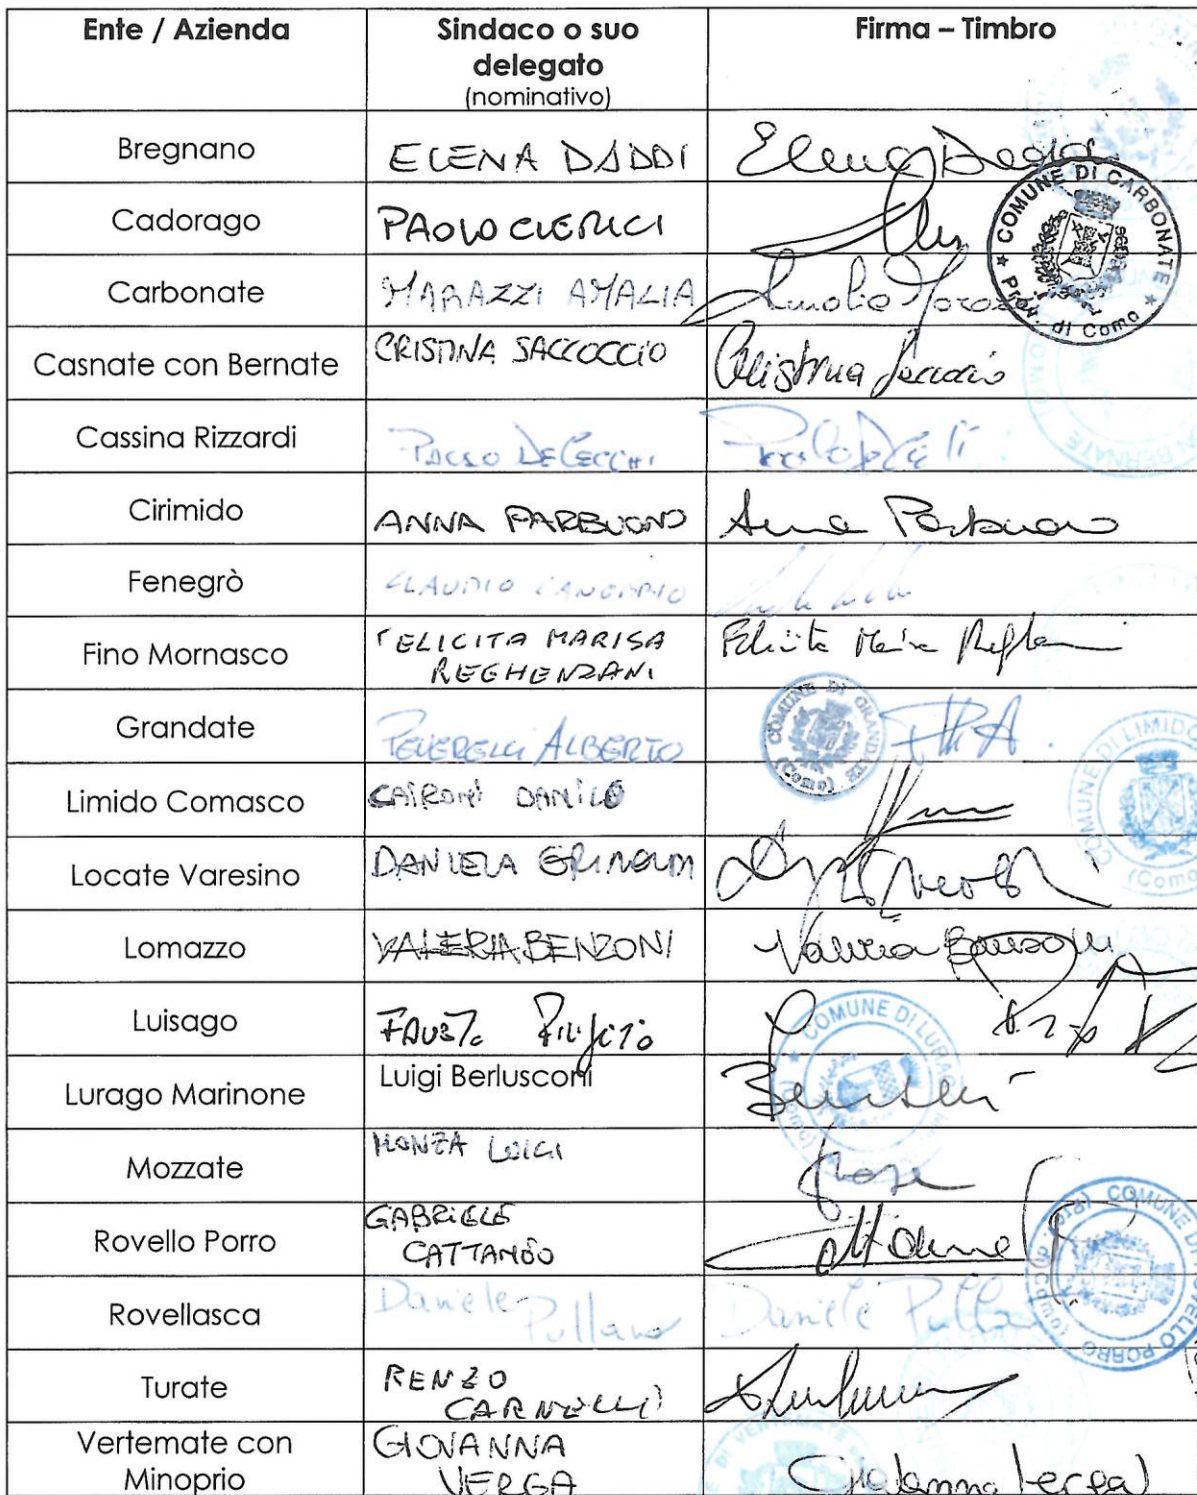 Ente / Azienda
Sindaco o suo
delegato
(nominativo)
Firma – Timbro
Bregnano
ELENA DADDI
Elena Daddi
Cadorago
PAOLO CLERICI
Carbonate
MARAZZI AMALIA
Amalia Marazzi
COMUNE DI CARBONATE
Prov. di Como
Casnate con Bernate
CRISTINA SACCOCCIO
Cristina Saccoccio
Cassina Rizzardi
PAOLO DE CECCHI
Cirimido
ANNA PARBUONO
Anna Parbuono
Fenegrò
CLAUDIO CANOBBIO
Fino Mornasco
FELICITA MARISA
REGHENZANI
Grandate
PEVERELLI ALBERTO
COMUNE DI GRANDATE
(Como)
Limido Comasco
CAIRONI DANILO
COMUNE DI LIMIDO
(Como
Locate Varesino
DANIELA GRINOLDI
Lomazzo
VALERIA BENZONI
Valeria Benzoni
Luisago
FAUSTO
Lurago Marinone
Luigi Berlusconi
COMUNE DI LURAG
(Como)
Mozzate
MONZA LUIGI
Rovello Porro
GABRIELE
CATTANEO
COMUNE DI ROVELLO PORRO
Rovellasca
Daniele
Pullano
Daniele Pullano
Turate
RENZO
CARNELLI
Vertemate con
Minoprio
GIOVANNA
VERGA
Giovanna Verga